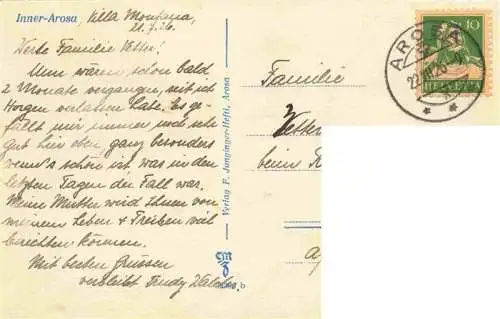 Inner-Arosa, Villa Montana,
21.7.26.
Werte Familie Vetter!
Nun wären schon bald
2 Monate vergangen, seit ich
Horgen verlassen habe. Es ge-
fällt mir immer noch sehr
gut hier oben ganz besonders
wenn's schön ist was in den
letzten Tagen der Fall war.
Meine Mutter wird Ihnen von
meinem Leben & Treiben viel
berichten können.
Mit besten Grüssen
verbleibt Trudy
Verlag F. Junginger-Hefti, Arosa
Familie
Vetter
beim
AROSA
10
HELVETIA